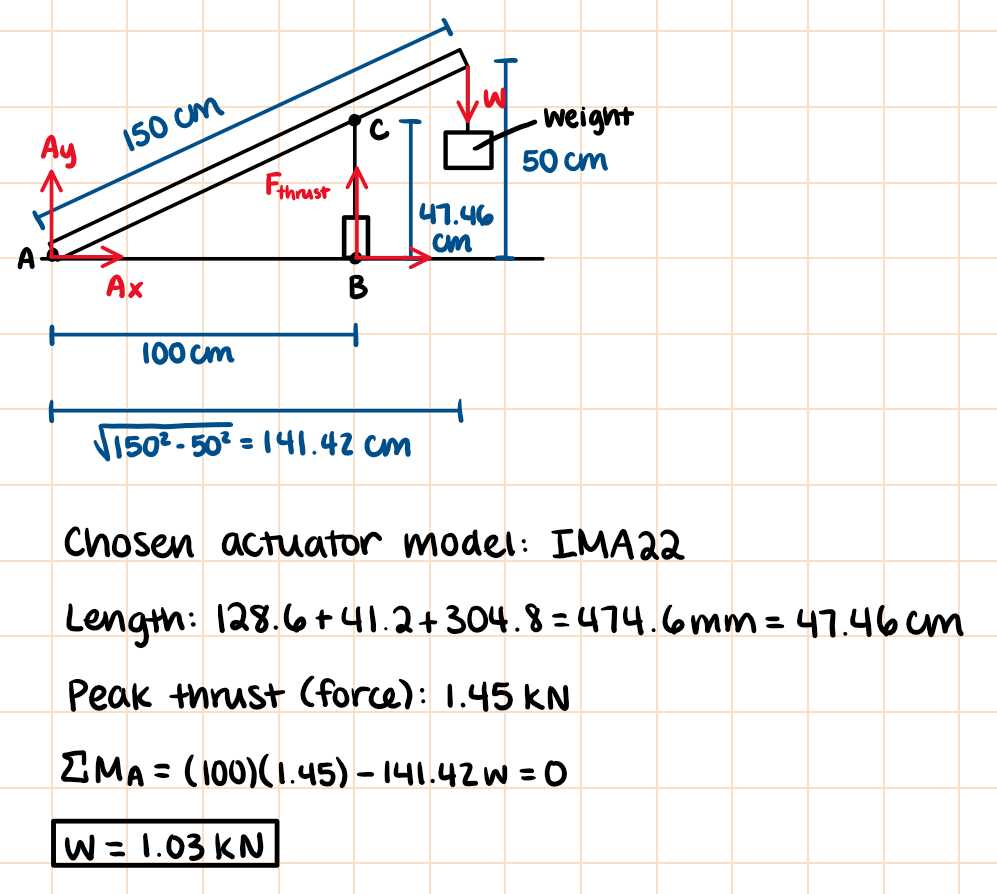 150 cm
Ay
C
W
weight
50 cm
Fthrust
47.46
cm
A
Ax
B
100 cm
√150² - 50² = 141.42 cm
Chosen actuator model: IMA22
Length: 128.6 + 41.2 + 304.8 = 474.6 mm = 47.46 cm
Peak thrust (force): 1.45 kN
ΣMA = (100)(1.45) - 141.42 W = 0
W = 1.03 kN